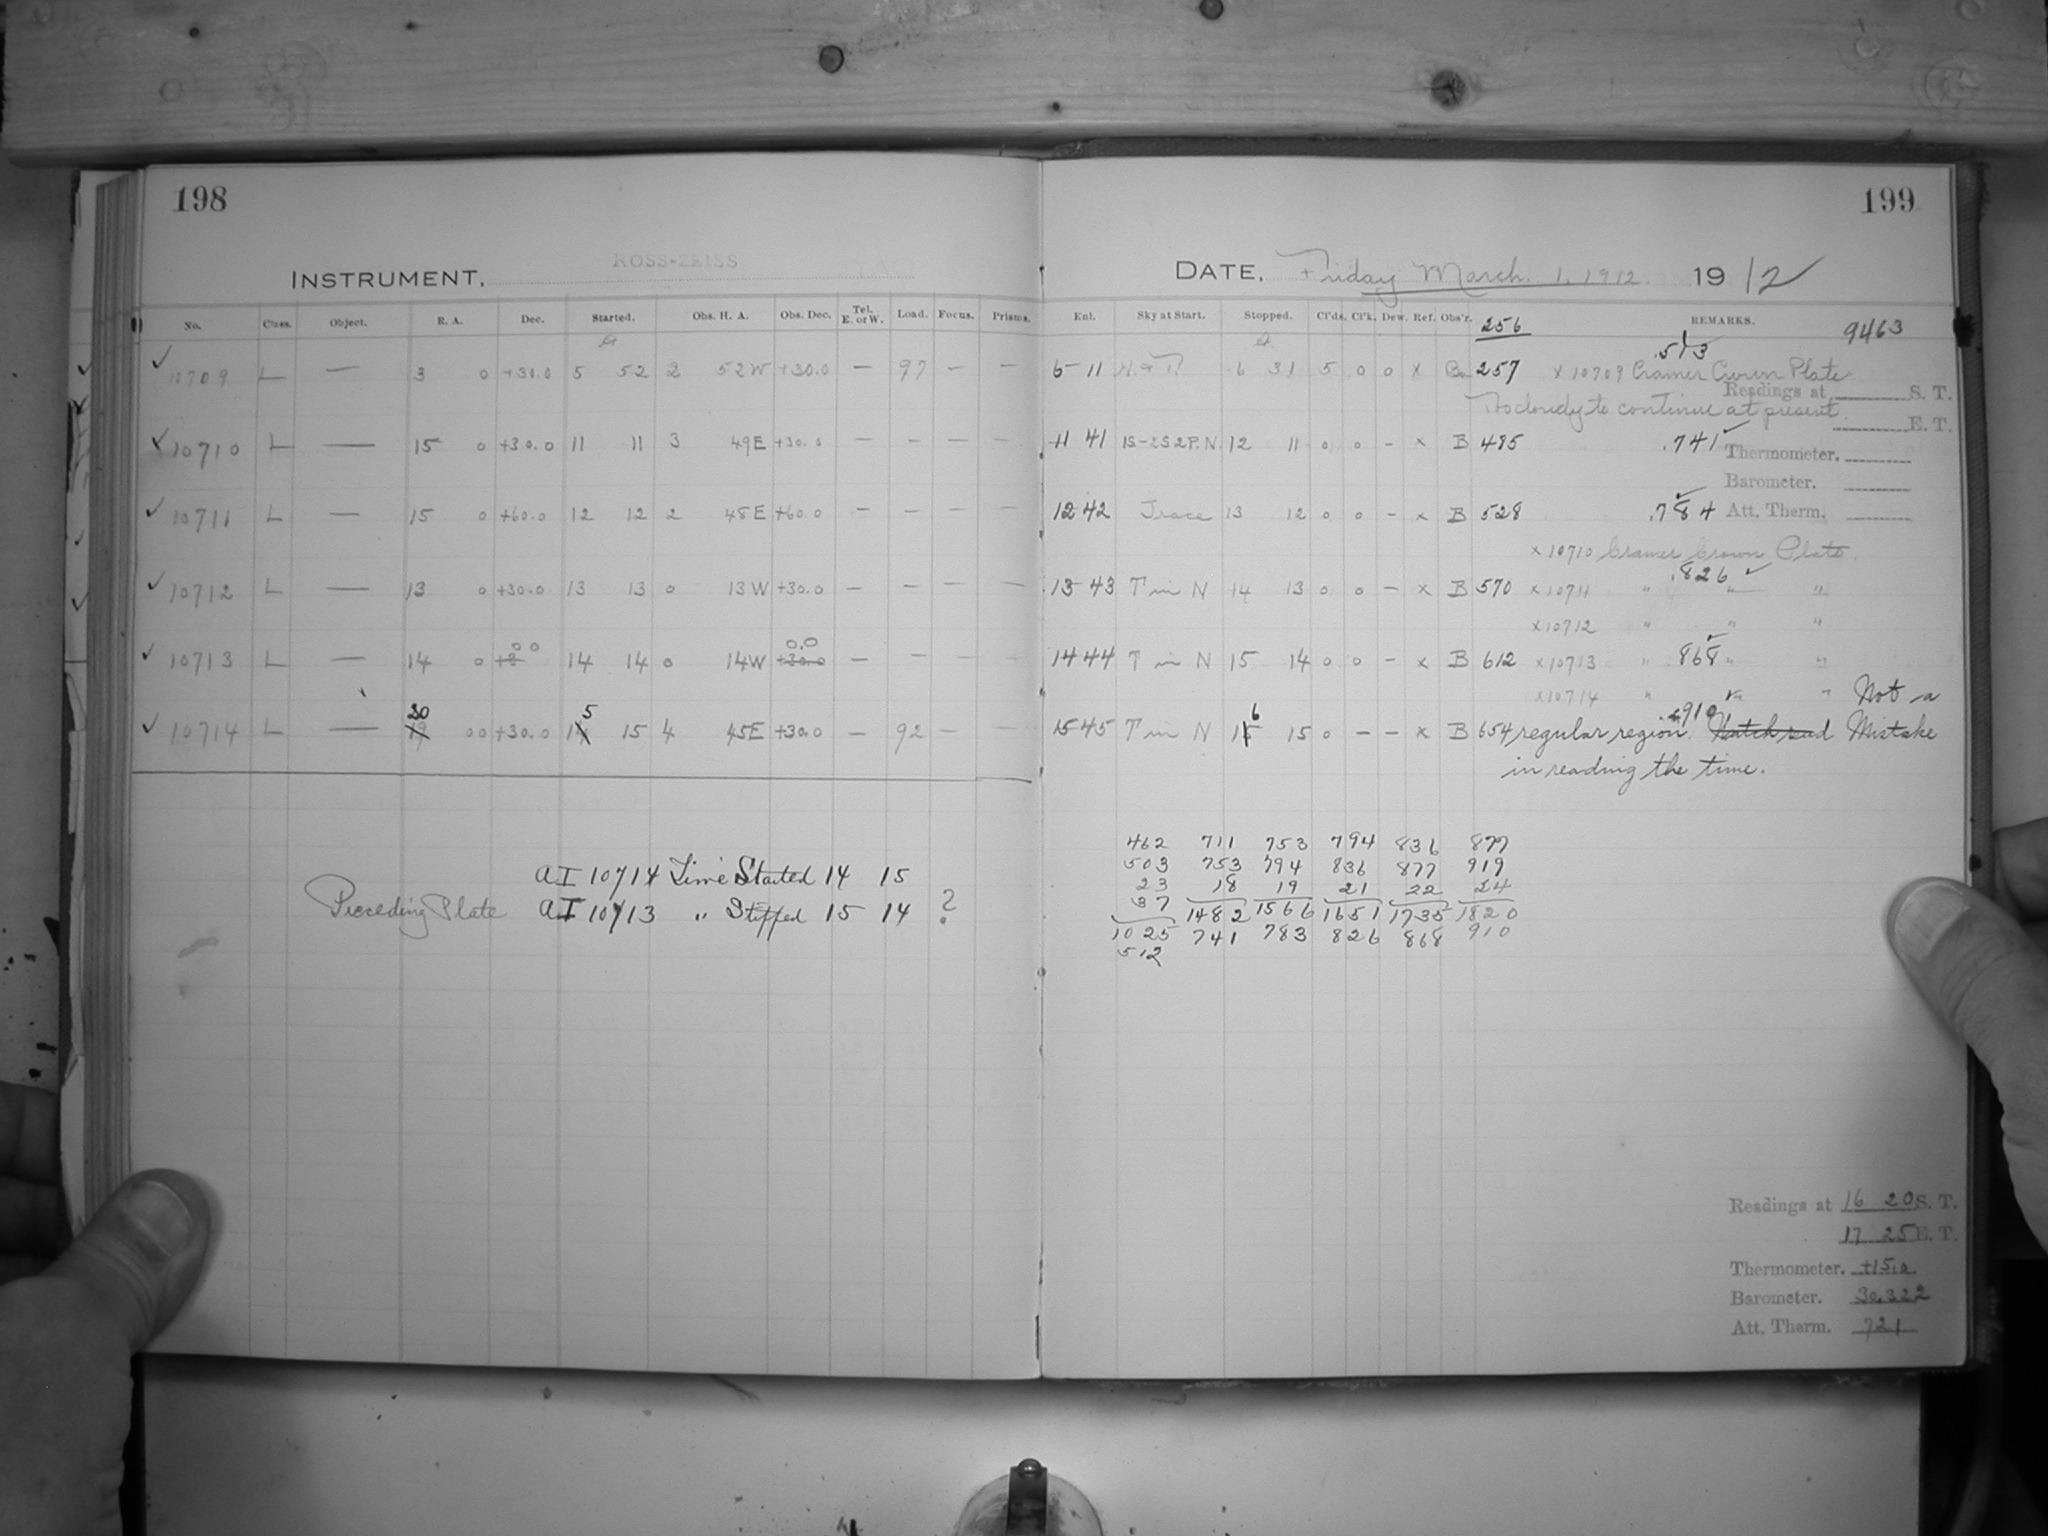 198
199
INSTRUMENT. ROSS-ZEISS
DATE. Friday March. 1. 1912. 19 12
No. Class. Object. R. A. Dec. Started. Obs. H. A. Obs. Dec. Tel. E. or W. Load. Focus. Prisms. Enl. Sky at Start. Stopped. Cl'ds. Cl'k. Dew. Ref. Obs'r. REMARKS.
256 .513 9463
10709 L — 3 0 +30.0 5 52 2 52W +30.0 — 97 — — 6-11 6 31 5 0 0 x 257 x 10709 Cramer Crown Plate
Readings at S. T.
Too cloudy to continue at present.
E. T.
10710 L — 15 0 +30.0 11 11 3 49E +30.0 — — — — 11 41 1S-2S2P.N. 12 11 0 0 - x B 485 .741
Thermometer.
Barometer.
10711 L — 15 0 +60.0 12 12 2 48E +60.0 — — — — 12 42 Trace 13 12 0 0 - x B 528 .784 Att. Therm.
x 10710 Cramer Crown Plate.
.826
10712 L — 13 0 +30.0 13 13 0 13W +30.0 — — — — 13 43 T in N 14 13 0 0 - x B 570 x 10711 " " "
x 10712 " " "
0 0 0.0
10713 L — 14 0 14 14 0 14W +30.0 — — — — 14 44 T in N 15 14 0 0 - x B 612 x 10713 " 868 " "
x 10714 " " " Not a
20 5 6 .910
10714 L — 19 00 +30.0 14 15 4 45E +30.0 — 92 — — 15 45 T in N 15 15 0 - - x B 654 regular region. Mistake
in reading the time.
AI 10714 Time Started 14 15
Preceding Plate AI 10713 " Stopped 15 14 ?
462 711 753 794 836 877
503 753 794 836 877 919
23 18 19 21 22 24
37 1482 1566 1651 1735 1820
1025 741 783 826 868 910
512
Readings at 16 20 S. T.
17 25 E. T.
Thermometer. +15.0
Barometer. 30.322
Att. Therm. 721